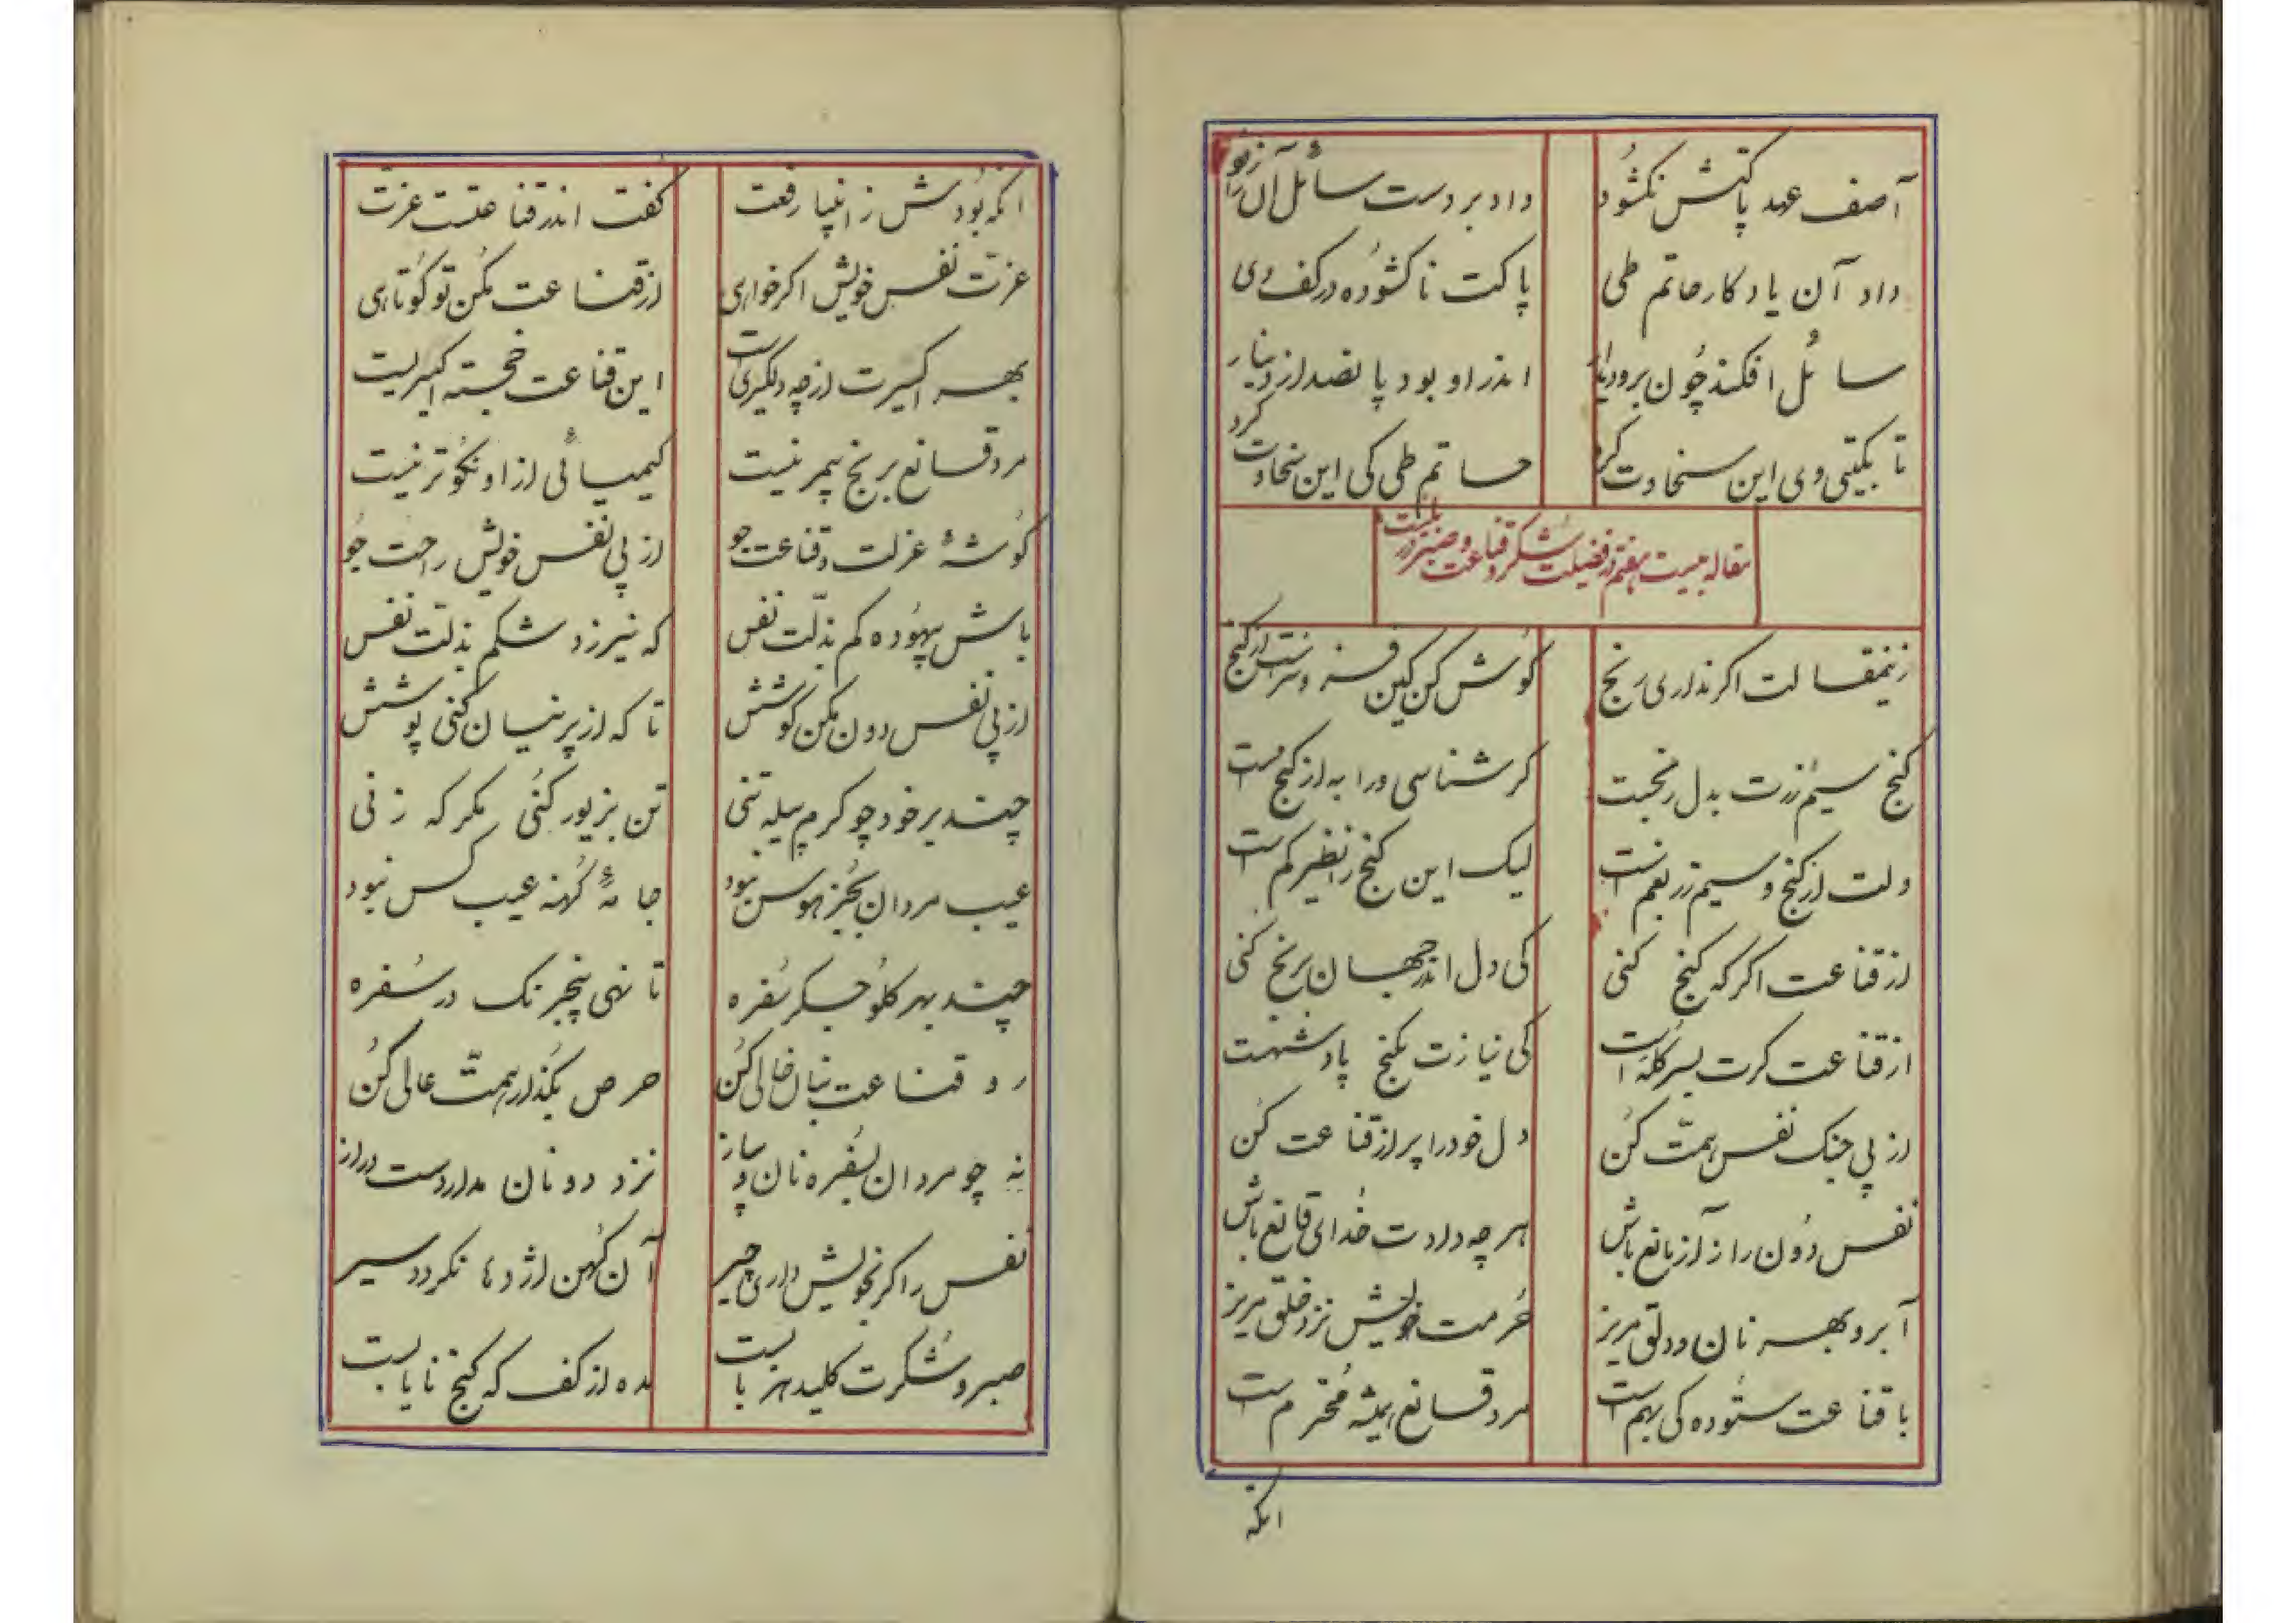 آصف عهد پاکتش نکشود
داد بر دست سائل آن را زود
داد آن یادکار حاتم طی
پاکت ناکشوده در کف وی
سائل افکند چون برو
اندر او بود پانصد از دینار
تا بکیتی وی این سخاوت کرد
حاتم طی کی این سخاوت کرد
مقاله بیست هفتم در فضیلت شکر و قناعت و صبر
زینمقالت اکر نداری رنج
کوش کن کین فسزونترست از کنج
کنج سیم زرت بدل رنجست
کر شناسی ورا به از کنجست
دلت از کنج و سیم زر بغم است
لیک این کنج را نظیر کم است
از قناعت اکر که کنج کنی
کی دل اندر جهان برنج کنی
از قناعت کرت بسر کله است
کی نیازت بکنج پادشهست
از پی جنک نفس همّت کن
دل خود را پر از قناعت کن
نفس دون را ز آز مانع باش
هر چه دادت خدای قانع باش
آبرو بهر نان و دلق مریز
حرمت خویش نزد خلق مریز
با قناعت ستوده کی بهم است
مرد قانع همیشه محترم است
انکه
انکه بودش ز انبیا رفعت
کفت اندر قناعتست عزت
عزّت نفس خویش اکر خواهی
از قناعت مکن تو کوتاهی
بهر اکسیرت از چه دلکیری است
این قناعت خجسته اکسیریست
مرد قانع برنج پیمر نیست
کیمیائی از او نکوتر نیست
کوشهٔ عزلت و قناعت جو
از پی نفس خویش راحت جو
باش بیهوده کم بذلّت نفس
که نیرزد شکم بذلت نفس
از پی نفس دون مکن کوشش
تا که از پرنیان کنی پوشش
چند بر خود چو کرم پیله تنی
تن بزیور کنی مکر که زنی
عیب مردان بجز هوس نبود
جامهٔ کهنه عیب کس نبود
چند بهر کلو جکر سفره
تا نهی پنجر نک در سفره
رو قناعت بنال خالی کن
حرص بکذار همّت عالی کن
نه چو مردان بسفره نان و پیاز
نزد دونان مدار دست دراز
نفس را کر بخویش داری چیر
آن کهن اژدها نکردد سیر
صبر و شکرت کلید هر بابست
مده از کف که کنج نایابست